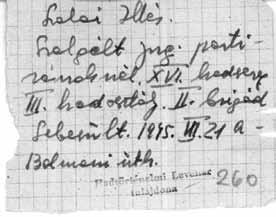 Szalai Illés.
Szolgált jug. parti-
zánoknál. XVI. hadsereg
III. hadosztály. II. brigád
Sebesült. 1945. III. 21 a
Bolmani ütk.
Hadtörténelmi Levéltár
tulajdona
260